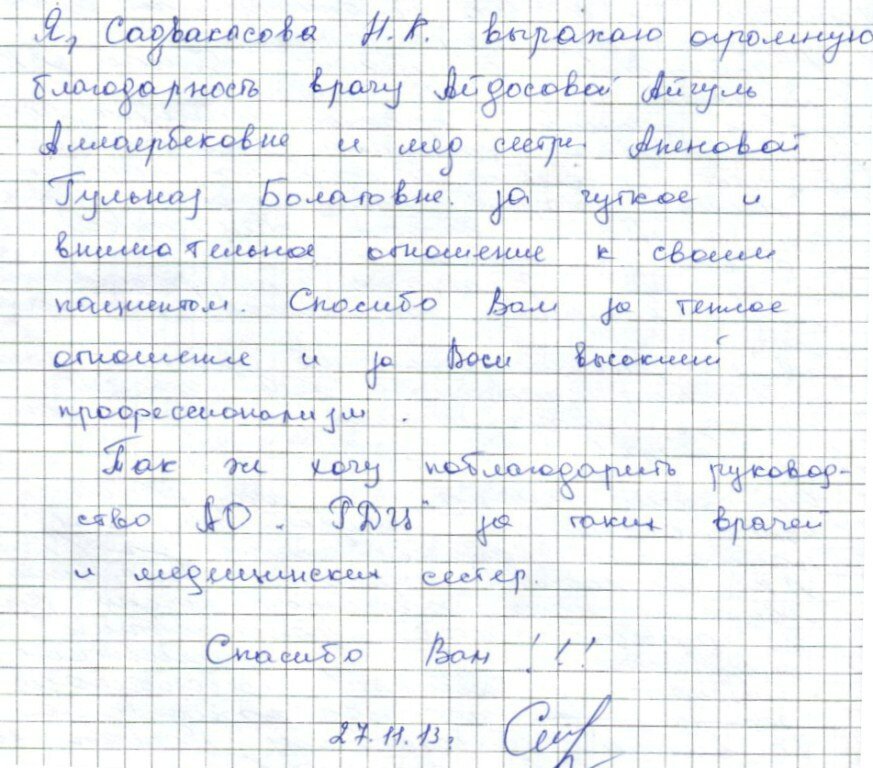 Я, Садвакасова Н.К. выражаю огромную
благодарность врачу Айдосовой Айгуль
Аллаербековне и мед сестре. Апеновой
Гульназ Болатовне. за чуткое и
внимательное отношение к своим
пациентом. Спасибо Вам за теплое
отношение и за Ваш высокий
профессионализм.
Так же хочу поблагодарить руковод-
ство АО „РДЦ" за таких врачей
и медицинских сестер.
Спасибо Вам!!!
27.11.13г